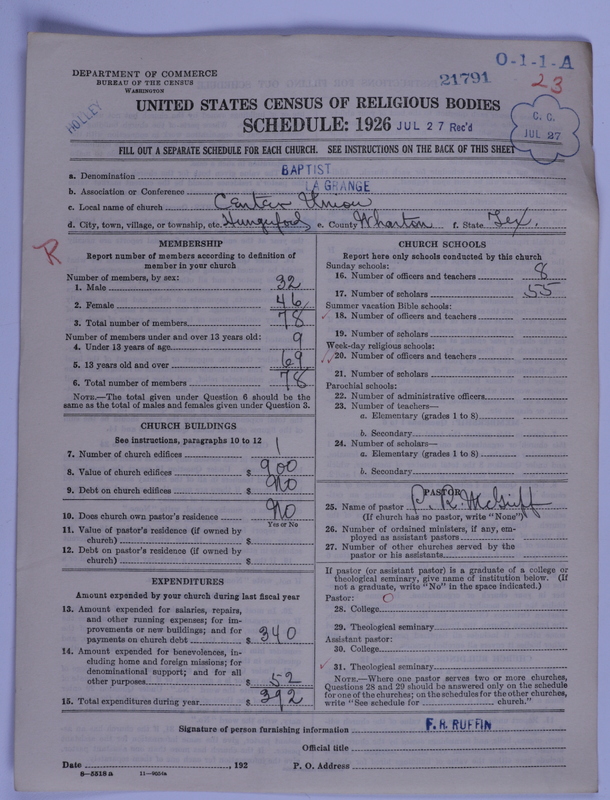 DEPARTMENT OF COMMERCE
BUREAU OF THE CENSUS
WASHINGTON
21791
O-1-1-A
23
HOLLEY
UNITED STATES CENSUS OF RELIGIOUS BODIES
SCHEDULE: 1926 JUL 27 Rec'd
C. C.
JUL 27
FILL OUT A SEPARATE SCHEDULE FOR EACH CHURCH. SEE INSTRUCTIONS ON THE BACK OF THIS SHEET
a. Denomination BAPTIST
b. Association or Conference LA GRANGE
c. Local name of church Center Union
d. City, town, village, or township, etc. Hungerford e. County Wharton f. State Tex.
R
MEMBERSHIP
Report number of members according to definition of
member in your church
Number of members, by sex:
1. Male 32
2. Female 46
3. Total number of members 78
Number of members under and over 13 years old:
4. Under 13 years of age 9
5. 13 years old and over 69
6. Total number of members 78
NOTE.—The total given under Question 6 should be the
same as the total of males and females given under Question 3.
CHURCH BUILDINGS
See instructions, paragraphs 10 to 12
7. Number of church edifices 1
8. Value of church edifices $ 900
9. Debt on church edifices $ No
10. Does church own pastor's residence No
Yes or No
11. Value of pastor's residence (if owned by
church) $
12. Debt on pastor's residence (if owned by
church) $
EXPENDITURES
Amount expended by your church during last fiscal year
13. Amount expended for salaries, repairs,
and other running expenses; for im-
provements or new buildings; and for
payments on church debt $ 340
14. Amount expended for benevolences, in-
cluding home and foreign missions; for
denominational support; and for all
other purposes $ 52
15. Total expenditures during year $ 392
CHURCH SCHOOLS
Report here only schools conducted by this church
Sunday schools:
16. Number of officers and teachers 8
17. Number of scholars 55
Summer vacation Bible schools:
18. Number of officers and teachers
19. Number of scholars
Week-day religious schools:
20. Number of officers and teachers
21. Number of scholars
Parochial schools:
22. Number of administrative officers
23. Number of teachers—
a. Elementary (grades 1 to 8)
b. Secondary
24. Number of scholars—
a. Elementary (grades 1 to 8)
b. Secondary
PASTOR
25. Name of pastor P. R. McGriff
(If church has no pastor, write "None")
26. Number of ordained ministers, if any, em-
ployed as assistant pastors
27. Number of other churches served by the
pastor or his assistants
If pastor (or assistant pastor) is a graduate of a college or
theological seminary, give name of institution below. (If
not a graduate, write "No" in the space indicated.)
Pastor: O
28. College
29. Theological seminary
Assistant pastor:
30. College
31. Theological seminary
NOTE.—Where one pastor serves two or more churches,
Questions 28 and 29 should be answered only on the schedule
for one of the churches; on the schedules for the other churches,
write "See schedule for church."
Signature of person furnishing information F. H. RUFFIN
Official title
Date , 192
P. O. Address
8-5518 a 11-9554a